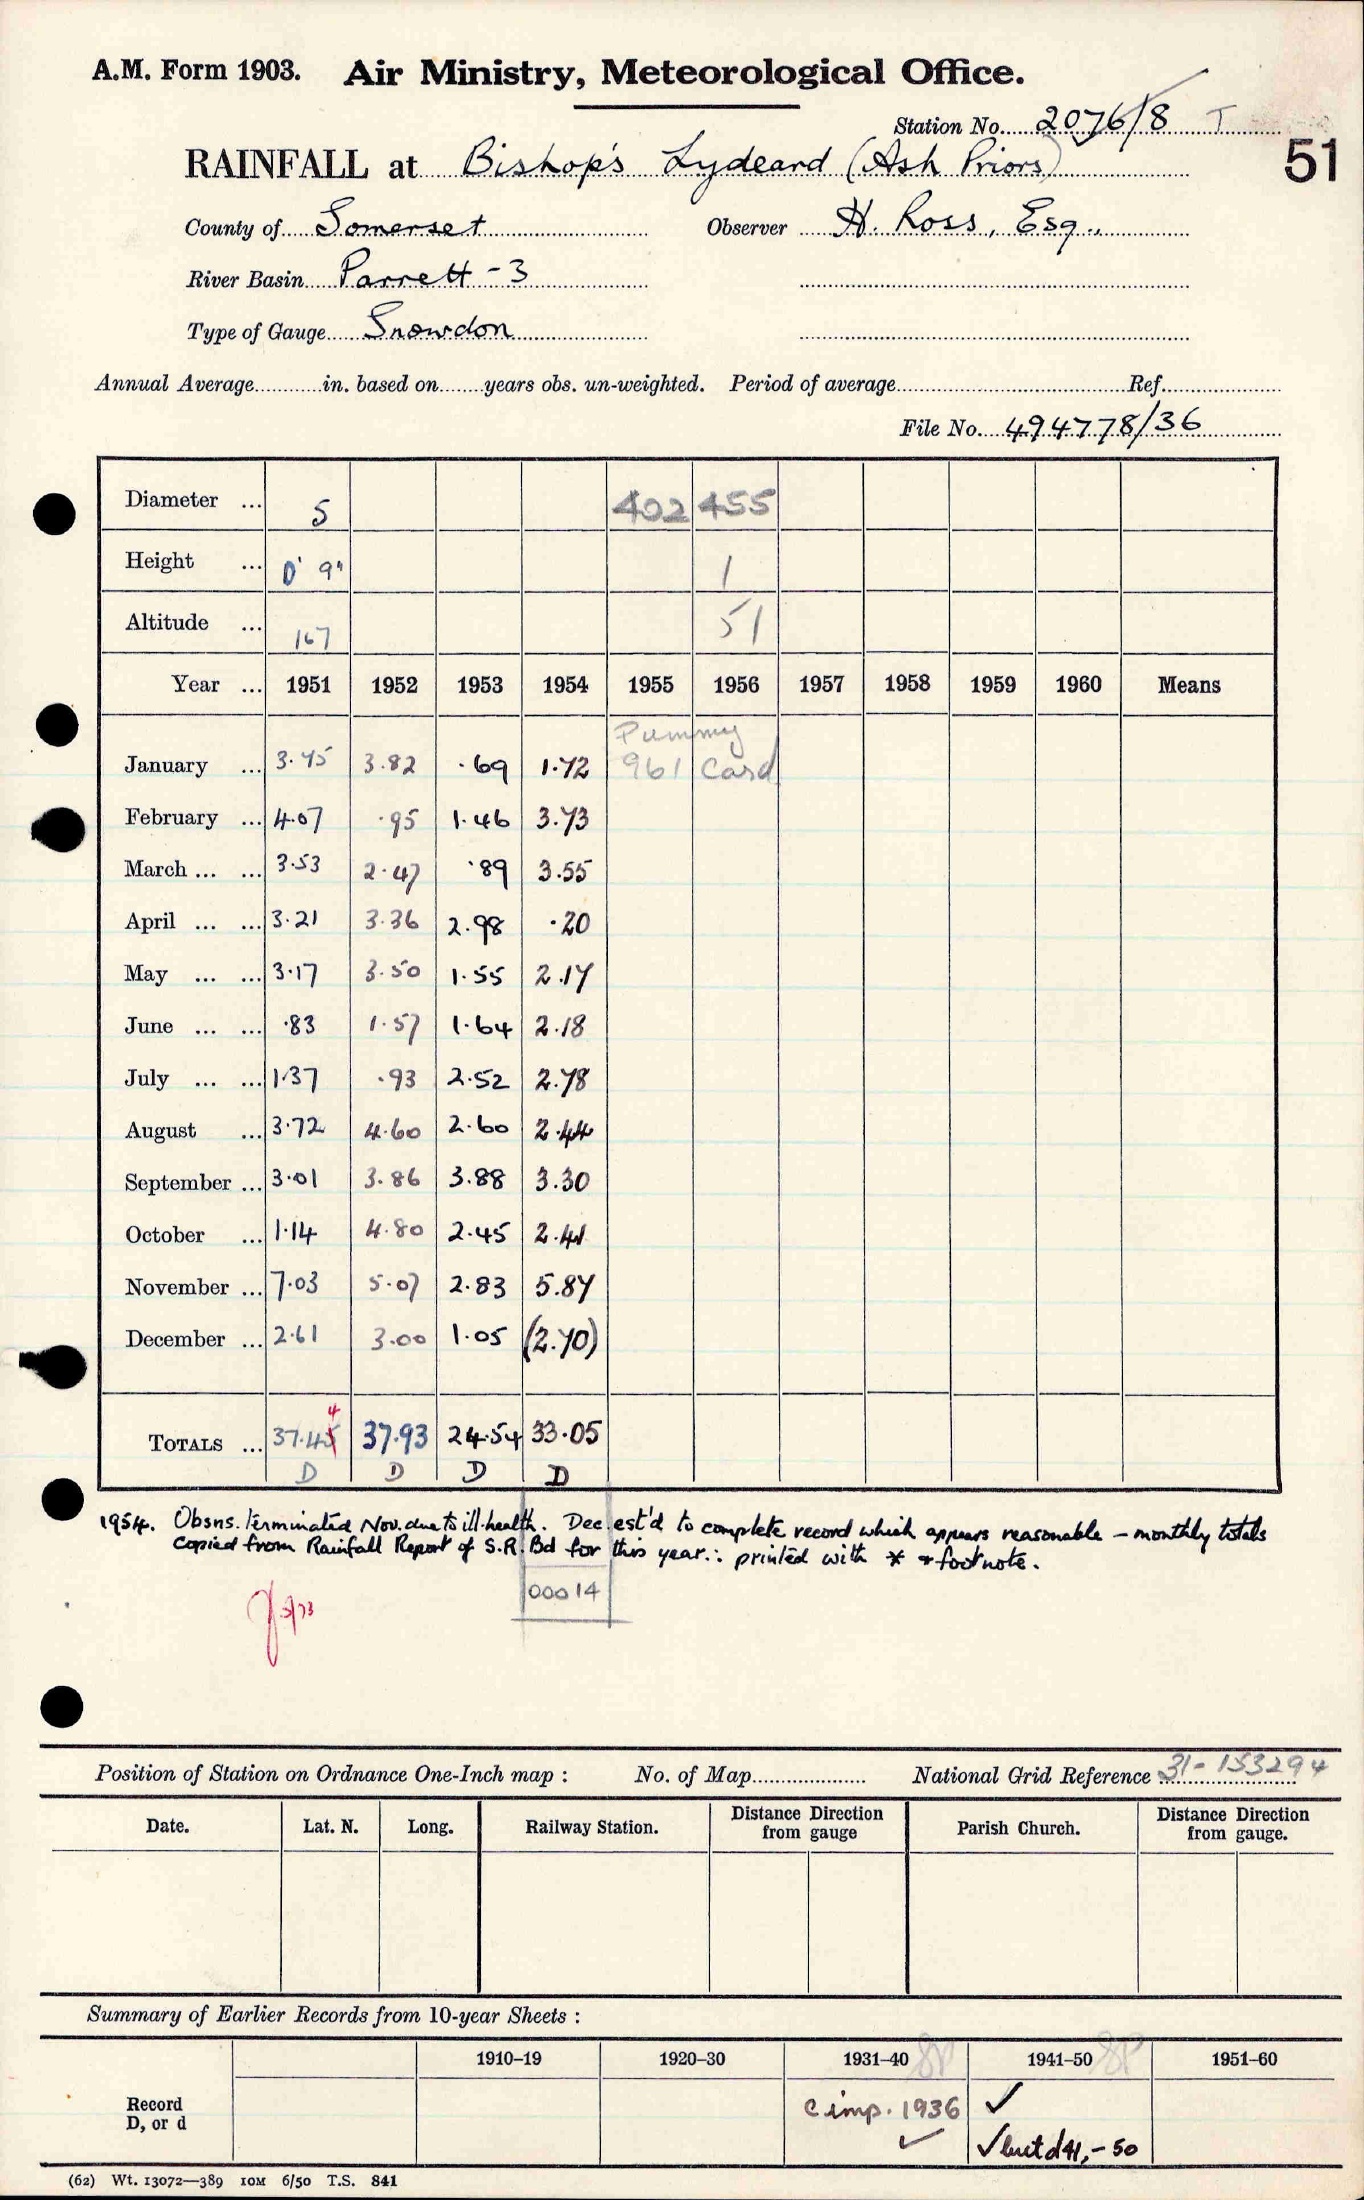 A.M. Form 1903. Air Ministry, Meteorological Office.
Station No. 2076/8 T
RAINFALL at Bishop's Lydeard (Ash Priors)
51
County of Somerset Observer H. Ross, Esq.,
River Basin Parrett - 3
Type of Gauge Snowdon
Annual Average in. based on years obs. un-weighted. Period of average Ref.
File No. 494778/36
Diameter ... 5 402 455
Height ... 0' 9" 1
Altitude ... 167 51
Year ... 1951 1952 1953 1954 1955 1956 1957 1958 1959 1960 Means
Pummy
January ... 3.75 3.82 .69 1.72 961 Card
February ... 4.07 .95 1.46 3.73
March ... ... 3.53 2.47 .89 3.55
April ... ... 3.21 3.36 2.98 .20
May ... ... 3.17 3.50 1.55 2.17
June ... ... .83 1.57 1.64 2.18
July ... ... 1.37 .93 2.52 2.78
August ... 3.72 4.60 2.60 2.44
September ... 3.01 3.86 3.88 3.30
October ... 1.14 4.80 2.45 2.41
November ... 7.03 5.07 2.83 5.87
December ... 2.61 3.00 1.05 (2.70)
4
TOTALS ... 37.45 37.93 24.54 33.05
D D D D
1954. Obsns. terminated Nov. due to ill-health. Dec est'd to complete record which appears reasonable – monthly totals
copied from Rainfall Report of S.R. Bd for this year ∴ printed with * & footnote.
00014
3/73
Position of Station on Ordnance One-Inch map : No. of Map National Grid Reference 31-153294
Date. Lat. N. Long. Railway Station. Distance Direction from gauge Parish Church. Distance Direction from gauge.
Summary of Earlier Records from 10-year Sheets :
1910–19 1920–30 1931–40 SP 1941–50 SP 1951–60
Record D, or d c imp. 1936 ✓ ✓
✓ but d 41,-50
(62) Wt. 13072—389 10M 6/50 T.S. 841